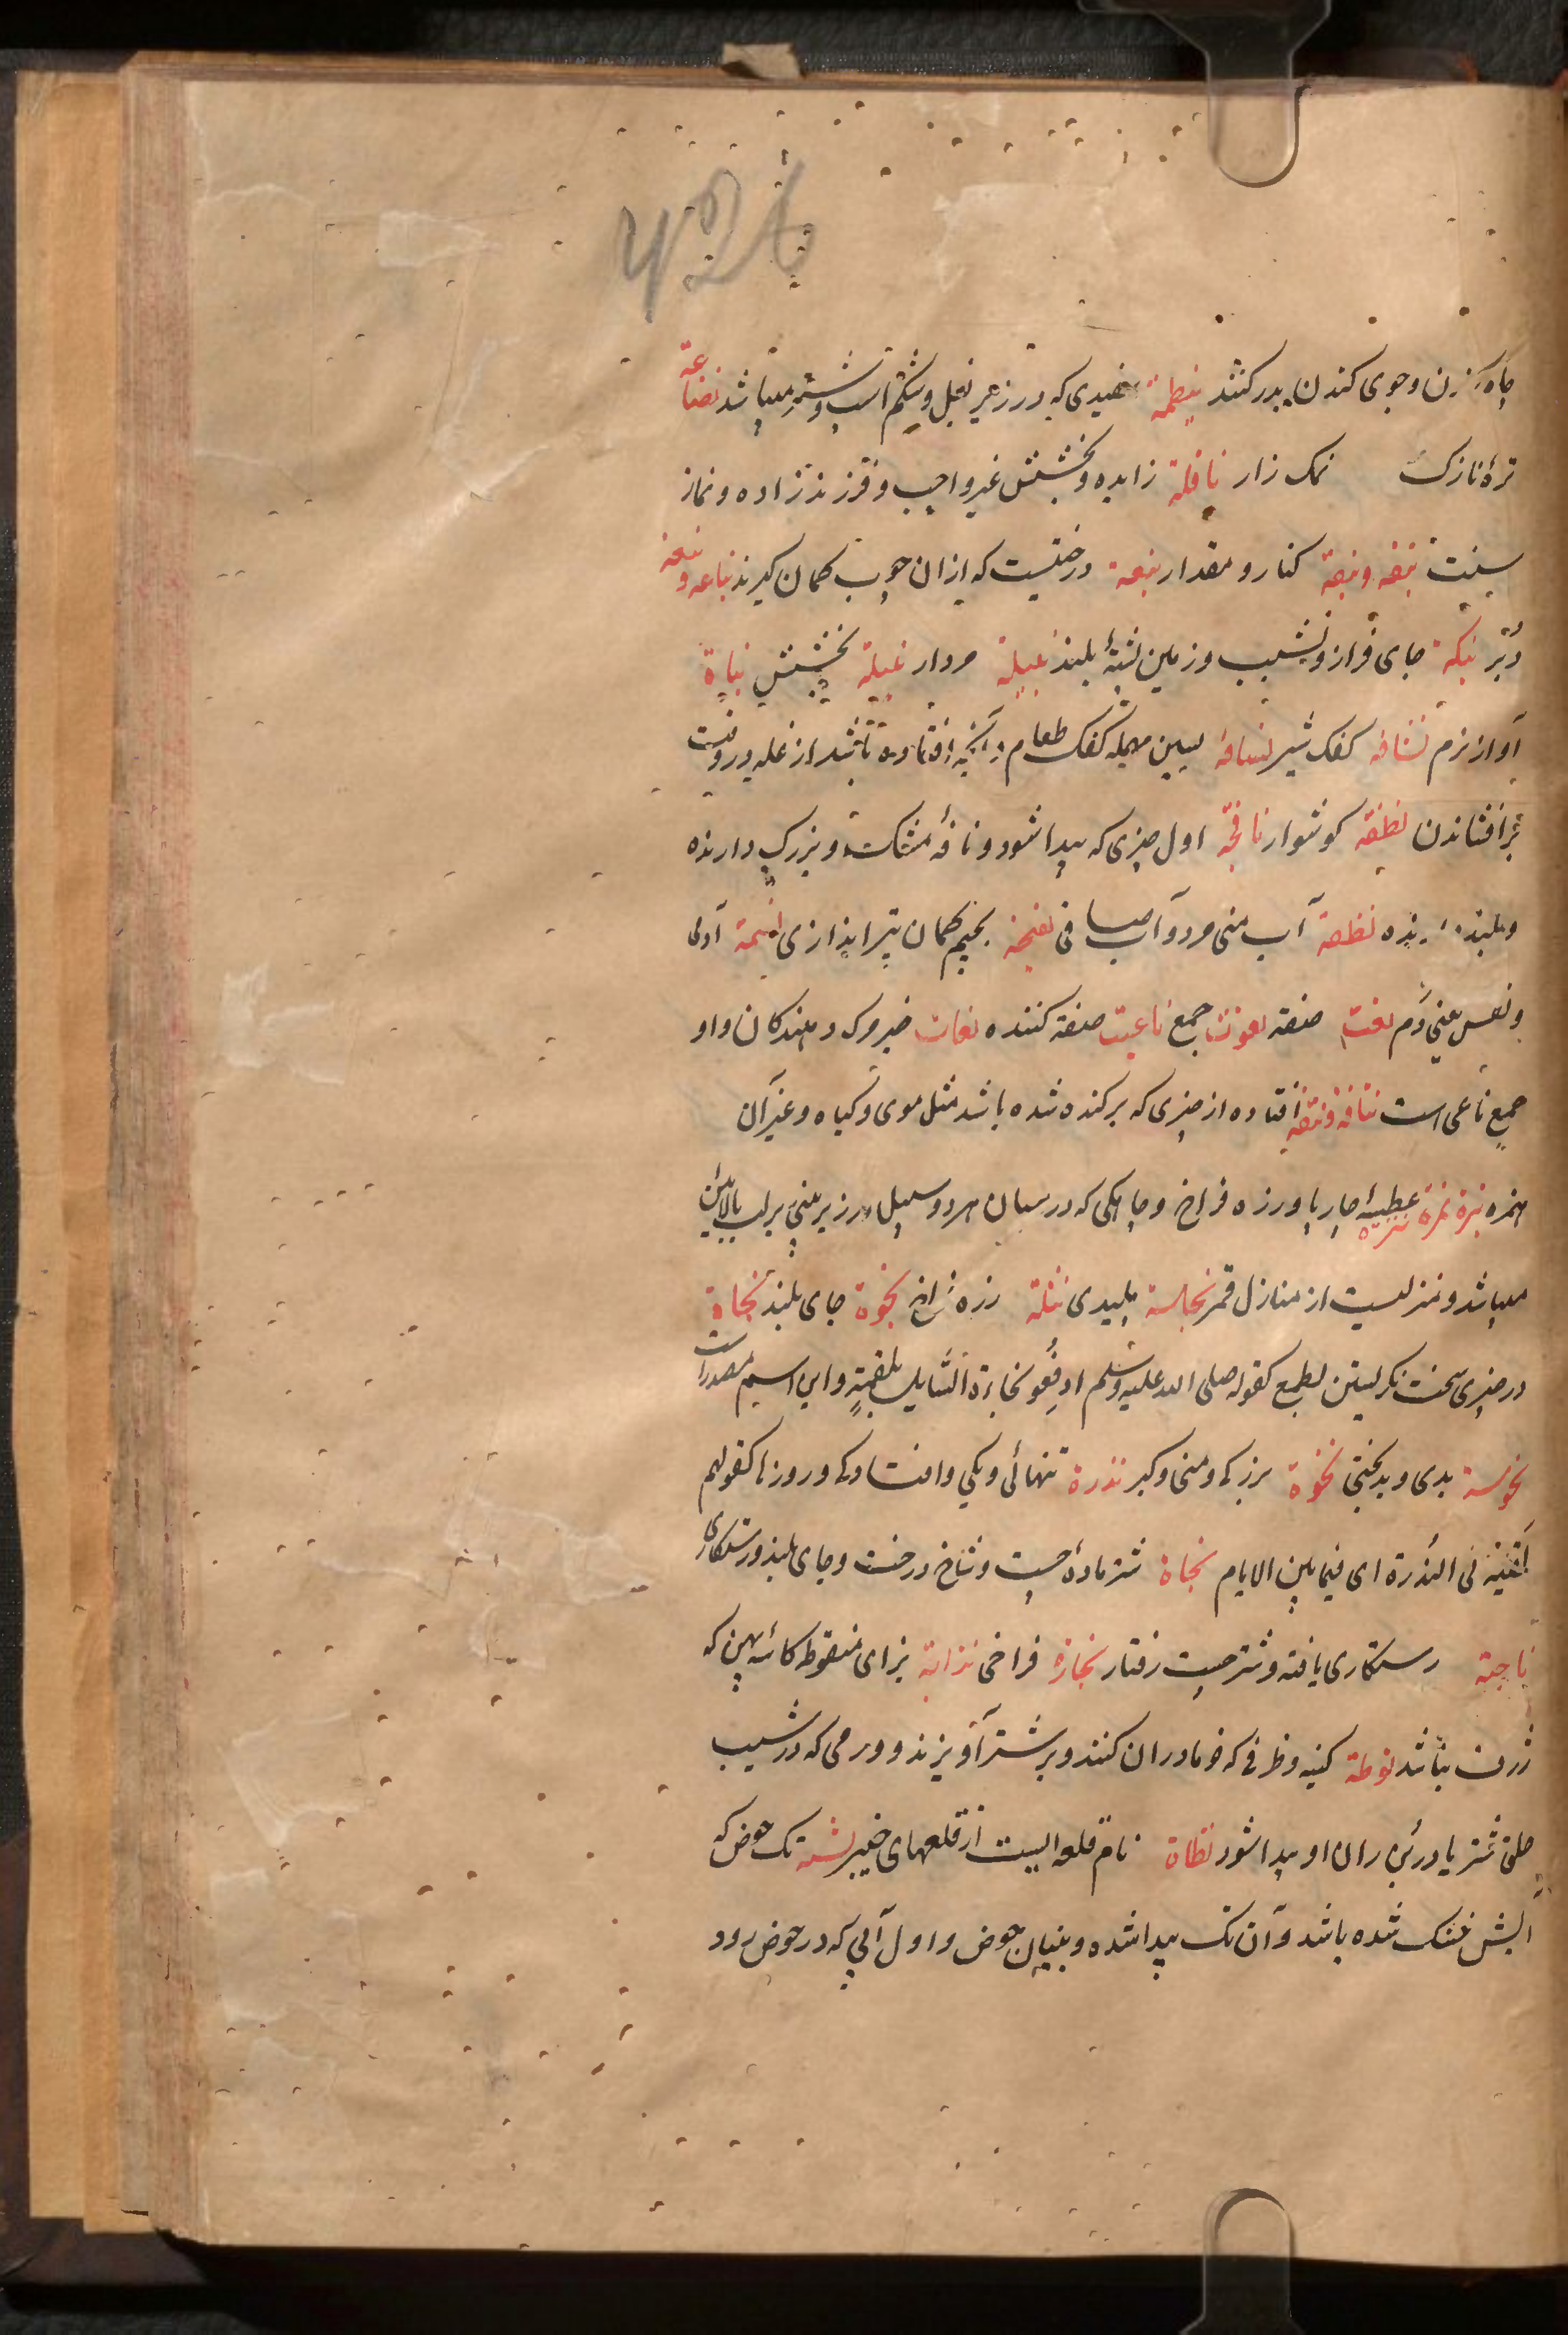 چاه کردن و جوی کندن بدر کنند سفیدی که در زیر بغل و شکم اسپ و شتر میباشد نضاعة
ترهٔ نازک نمک زار نافلة زایده و بخشش غیر واجب و فرزند زاده و نماز
سنت کنار و مقدار نبعة درختیست که ازان چوب کمان گیرند نباعه و نبعه
دبر نبکة جای فراز و نشیب و زمین پشتهٔ بلند نبیلة مردار بخشش نباة
آواز نرم نشافه کفک شیر نسافه بسین مهمله کفک طعام و آنچه افتاده باشد از غله در وقت
برافشاندن نطفة گوشوار نافجة اول چیزی که پیدا شود و نافهٔ مشک و بزرگ دارنده
و بلند نطفة آب منی مرد و آب صافی نفیجة بجیم کمان تیراندازی نسمة آدمی
و نفس یعنی دم نعت صفة نعوت جمع ناعت صفة کننده نعات خبر مرگ دهندگان و او
جمع ناعی است نتافة و نتفة افتاده از چیزی که برکنده شده باشد مثل موی و گیاه و غیر آن
نثرة عطسهٔ چارپا و زره فراخ و چاهکی که در میان هر دو سبیل در زیر بینی بر لب بالائین
میباشد و منزلیست از منازل قمر نجاسة پلیدی نثلة زره فراخ نجوة جای بلند نجاة
در چیزی سخت نگریستن بطمع کقوله صلی الله علیه وسلم ادفعو نجاءة السایل بلقمة و این اسم مصدر است
نحوسة بدی و بدبختی نخوة بزرگی و منی و کبر ندرة تنهائی و یکی و افتادگی و روزها کقولهم
لقیته فی الندرة ای فیما بین الایام نجاة شتر مادهٔ جست و شاخ درخت و جای بلند و رستگاری
ناجیة رستگاری یافته و شتر جست رفتار فراخی بزای منقوطه کاسه پهن که
ژرف نباشد نوطة کینه و ظرفی که خرما دران کنند و بر شتر آویزند و ورمی که در شیب
حلق شتر یا در بن ران او پیدا شود نطاة نام قلعه ایست از قلعهای خیبر تک حوض که
آبش خشک شده باشد و آن تک پیدا شده و بنیان حوض و اول آبی که در حوض رود